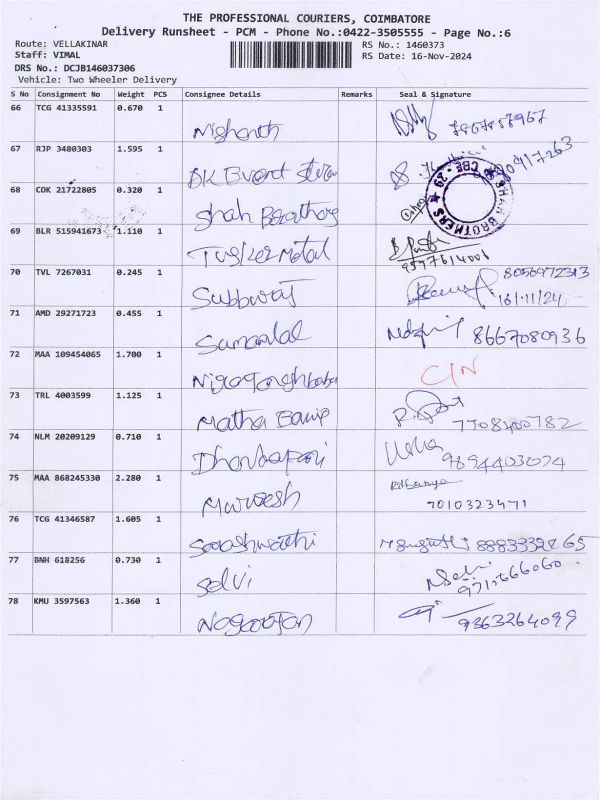 THE PROFESSIONAL COURIERS, COIMBATORE
Delivery Runsheet - PCM - Phone No.:0422-3505555 - Page No.:6
Route: VELLAKINAR RS No.: 1460373
Staff: VIMAL RS Date: 16-Nov-2024
DRS No.: DCJB146037306
Vehicle: Two Wheeler Delivery
S No Consignment No Weight PCS Consignee Details Remarks Seal & Signature
66 TCG 41335591 0.670 1
Nishanth
67 RJP 3480303 1.595 1
BK Event
68 COK 21722805 0.320 1
Shah
BROTHERS CBE - 29
69 BLR 515941673 1.110 1
Tusker Metal
70 TVL 7267031 0.245 1
Subburaj 8056972313
16/11/24
71 AMD 29271723 0.455 1
Sumanlal 8667080936
72 MAA 109454065 1.700 1
C/N
73 TRL 4003599 1.125 1
Matha 7708400782
74 NLM 20209129 0.710 1
Usha
9894403074
75 MAA 868245330 2.280 1
Murugesh 7010323471
76 TCG 41346587 1.605 1
77 BNH 618256 0.730 1
Selvi
78 KMU 3597563 1.360 1
Nagarajan 9363264099